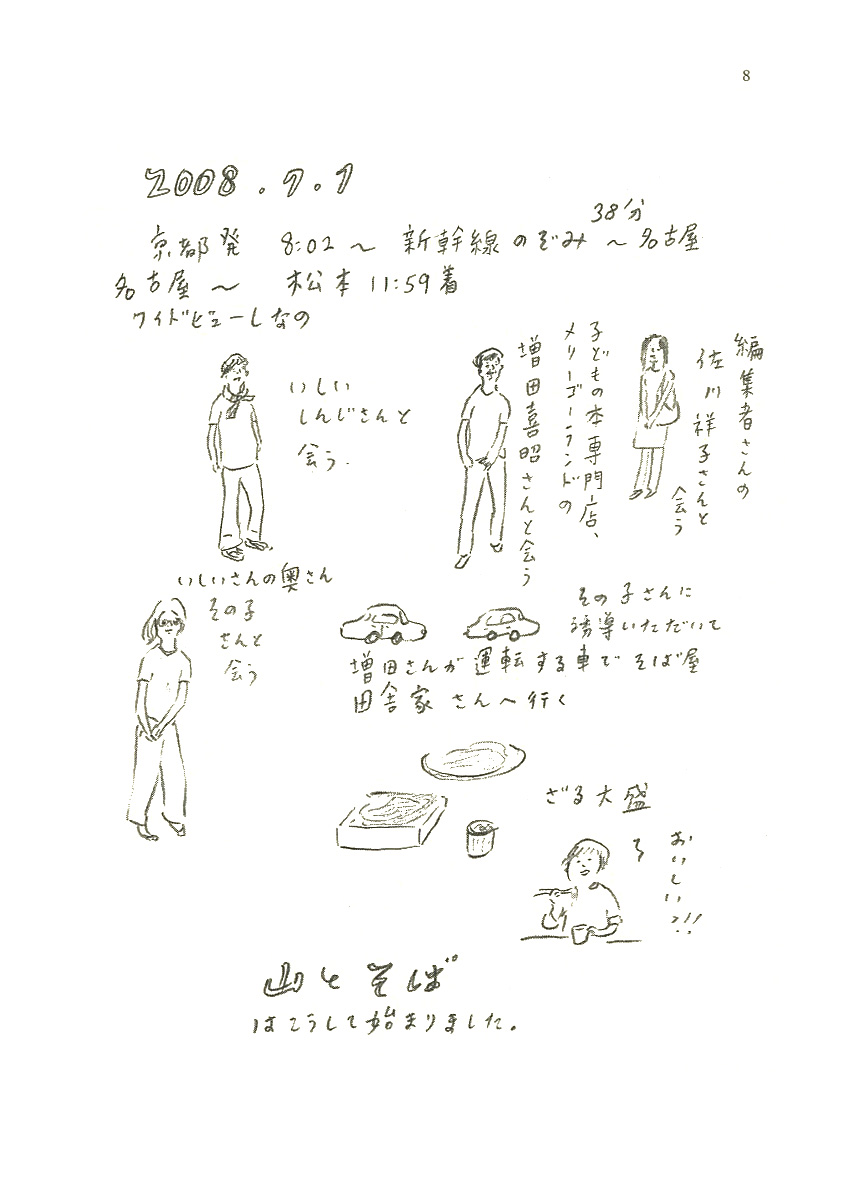 8
2008.9.9
京都発 8:02〜 新幹線のぞみ 38分 〜名古屋
名古屋〜 松本 11:59着
ワイドビューしなの
編集者さんの
佐川祥子さんと
会う
子どもの本専門店、
メリーゴーランドの
増田喜昭さんと会う
いしい
しんじさんと
会う.
いしいさんの奥さん
その子
さんと
会う
その子さんに
誘導いただいて
増田さんが運転する車でそば屋
田舎家さんへ行く
ざる大盛
おいしい!!
山とそば
はこうして始まりました。